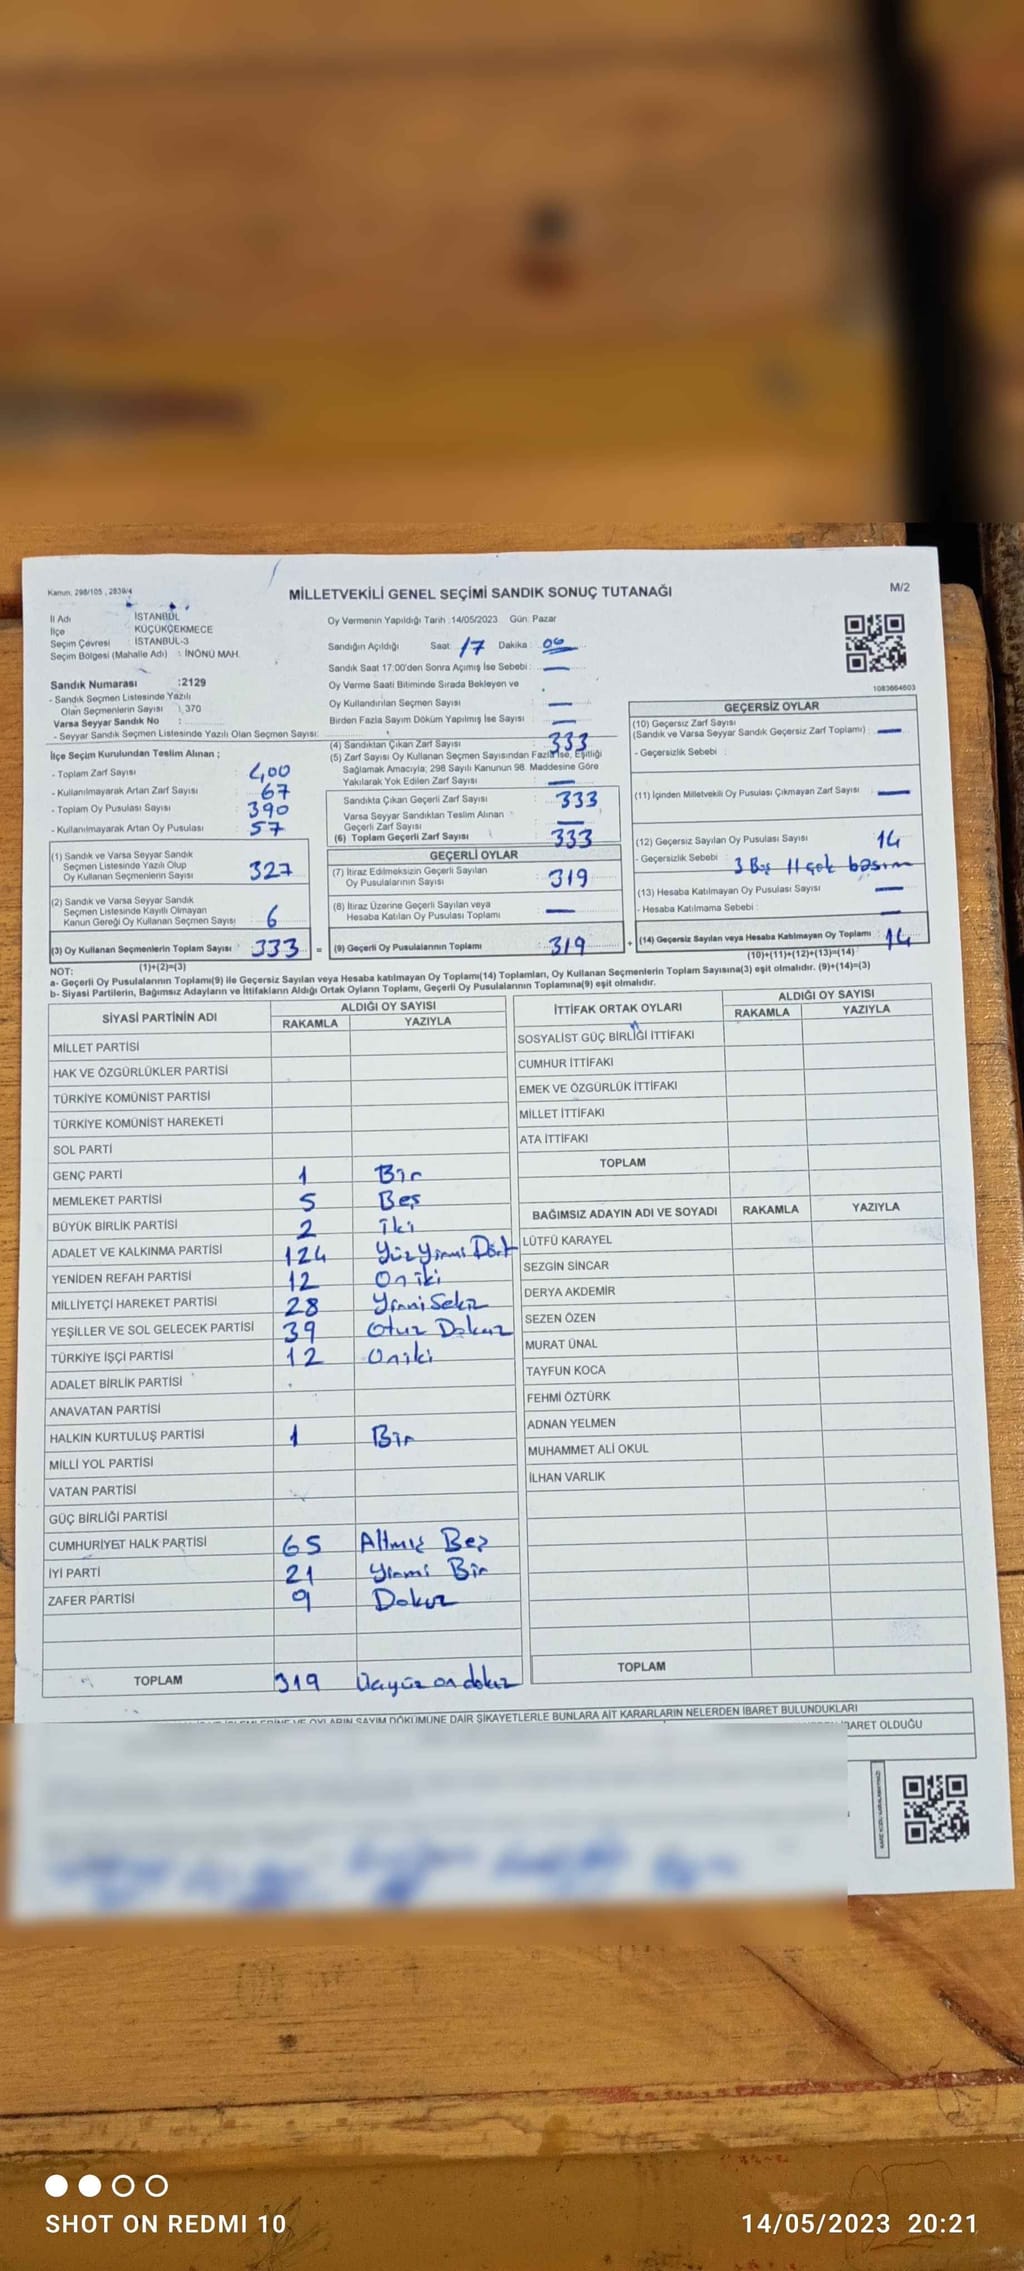 Kanun: 298/105 , 2839/4
MİLLETVEKİLİ GENEL SEÇİMİ SANDIK SONUÇ TUTANAĞI
M/2
İl Adı : İSTANBUL
İlçe : KÜÇÜKÇEKMECE
Seçim Çevresi : İSTANBUL-3
Seçim Bölgesi (Mahalle Adı) : İNÖNÜ MAH.
Sandık Numarası :2129
- Sandık Seçmen Listesinde Yazılı
Olan Seçmenlerin Sayısı : 370
Varsa Seyyar Sandık No :
- Seyyar Sandık Seçmen Listesinde Yazılı Olan Seçmen Sayısı:
Oy Vermenin Yapıldığı Tarih :14/05/2023 Gün: Pazar
Sandığın Açıldığı Saat: 17 Dakika: 00
Sandık Saat 17:00'den Sonra Açımış İse Sebebi : —
Oy Verme Saati Bitiminde Sırada Bekleyen ve
Oy Kullandırılan Seçmen Sayısı —
Birden Fazla Sayım Döküm Yapılmış İse Sayısı —
1083664603
İlçe Seçim Kurulundan Teslim Alınan ;
- Toplam Zarf Sayısı 400
- Kullanılmayarak Artan Zarf Sayısı 67
- Toplam Oy Pusulası Sayısı 390
- Kullanılmayarak Artan Oy Pusulası 57
(1) Sandık ve Varsa Seyyar Sandık
Seçmen Listesinde Yazılı Olup
Oy Kullanan Seçmenlerin Sayısı 327
(2) Sandık ve Varsa Seyyar Sandık
Seçmen Listesinde Kayıtlı Olmayan
Kanun Gereği Oy Kullanan Seçmen Sayısı 6
(3) Oy Kullanan Seçmenlerin Toplam Sayısı 333 =
(1)+(2)=(3)
(4) Sandıktan Çıkan Zarf Sayısı 333
(5) Zarf Sayısı Oy Kullanan Seçmen Sayısından Fazla İse, Eşitliği
Sağlamak Amacıyla; 298 Sayılı Kanunun 98. Maddesine Göre
Yakılarak Yok Edilen Zarf Sayısı —
Sandıkta Çıkan Geçerli Zarf Sayısı 333
Varsa Seyyar Sandıktan Teslim Alınan
Geçerli Zarf Sayısı —
(6) Toplam Geçerli Zarf Sayısı 333
GEÇERLİ OYLAR
(7) İtiraz Edilmeksizin Geçerli Sayılan
Oy Pusulalarının Sayısı 319
(8) İtiraz Üzerine Geçerli Sayılan veya
Hesaba Katılan Oy Pusulası Toplamı —
(9) Geçerli Oy Pusulalarının Toplamı 319 +
GEÇERSİZ OYLAR
(10) Geçersiz Zarf Sayısı
(Sandık ve Varsa Seyyar Sandık Geçersiz Zarf Toplamı) : —
- Geçersizlik Sebebi :
(11) İçinden Milletvekili Oy Pusulası Çıkmayan Zarf Sayısı —
(12) Geçersiz Sayılan Oy Pusulası Sayısı 14
- Geçersizlik Sebebi : 3 Boş 11 çok basım
(13) Hesaba Katılmayan Oy Pusulası Sayısı —
- Hesaba Katılmama Sebebi : —
(14) Geçersiz Sayılan veya Hesaba Katılmayan Oy Toplamı : 14
(10)+(11)+(12)+(13)=(14)
NOT:
a- Geçerli Oy Pusulalarının Toplamı(9) ile Geçersiz Sayılan veya Hesaba katılmayan Oy Toplamı(14) Toplamları, Oy Kullanan Seçmenlerin Toplam Sayısına(3) eşit olmalıdır. (9)+(14)=(3)
b- Siyasi Partilerin, Bağımsız Adayların ve İttifakların Aldığı Ortak Oyların Toplamı, Geçerli Oy Pusulalarının Toplamına(9) eşit olmalıdır.
SİYASİ PARTİNİN ADI ALDIĞI OY SAYISI
RAKAMLA YAZIYLA
MİLLET PARTİSİ
HAK VE ÖZGÜRLÜKLER PARTİSİ
TÜRKİYE KOMÜNİST PARTİSİ
TÜRKİYE KOMÜNİST HAREKETİ
SOL PARTİ
GENÇ PARTİ 1 Bir
MEMLEKET PARTİSİ 5 Beş
BÜYÜK BİRLİK PARTİSİ 2 İki
ADALET VE KALKINMA PARTİSİ 124 Yüz Yirmi Dört
YENİDEN REFAH PARTİSİ 12 On iki
MİLLİYETÇİ HAREKET PARTİSİ 28 Yirmi Sekiz
YEŞİLLER VE SOL GELECEK PARTİSİ 39 Otuz Dokuz
TÜRKİYE İŞÇİ PARTİSİ 12 Oniki
ADALET BİRLİK PARTİSİ
ANAVATAN PARTİSİ
HALKIN KURTULUŞ PARTİSİ 1 Bir
MİLLİ YOL PARTİSİ
VATAN PARTİSİ
GÜÇ BİRLİĞİ PARTİSİ
CUMHURİYET HALK PARTİSİ 65 Altmış Beş
İYİ PARTİ 21 Yirmi Bir
ZAFER PARTİSİ 9 Dokuz
TOPLAM 319 Üçyüz on dokuz
İTTİFAK ORTAK OYLARI ALDIĞI OY SAYISI
RAKAMLA YAZIYLA
SOSYALİST GÜÇ BİRLİĞİ İTTİFAKI
CUMHUR İTTİFAKI
EMEK VE ÖZGÜRLÜK İTTİFAKI
MİLLET İTTİFAKI
ATA İTTİFAKI
TOPLAM
BAĞIMSIZ ADAYIN ADI VE SOYADI RAKAMLA YAZIYLA
LÜTFÜ KARAYEL
SEZGİN SİNCAR
DERYA AKDEMİR
SEZEN ÖZEN
MURAT ÜNAL
TAYFUN KOCA
FEHMİ ÖZTÜRK
ADNAN YELMEN
MUHAMMET ALİ OKUL
İLHAN VARLIK
TOPLAM
VE OYLARIN SAYIM DÖKÜMÜNE DAİR ŞİKAYETLERLE BUNLARA AİT KARARLARIN NELERDEN İBARET BULUNDUKLARI
İBARET OLDUĞU
SHOT ON REDMI 10
14/05/2023 20:21